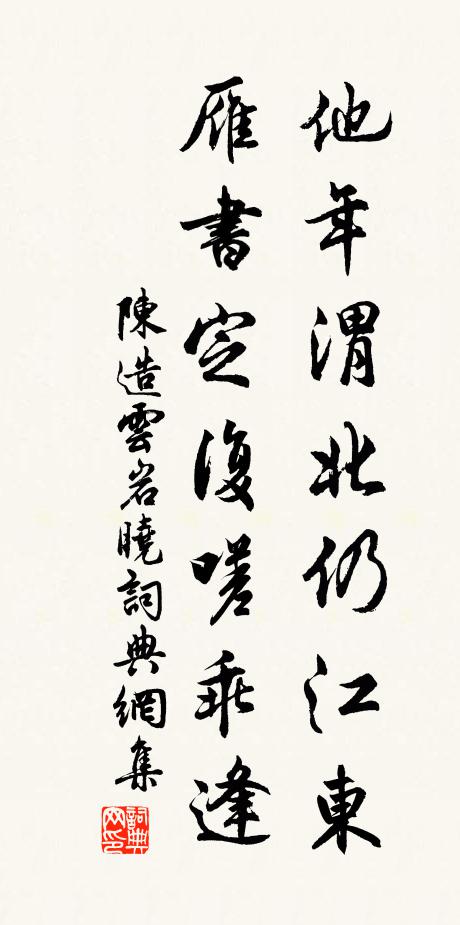 他年渭北仍江東
雁書定復嗟乖逢
陳造雲岩曉詞典網集
詞典网印